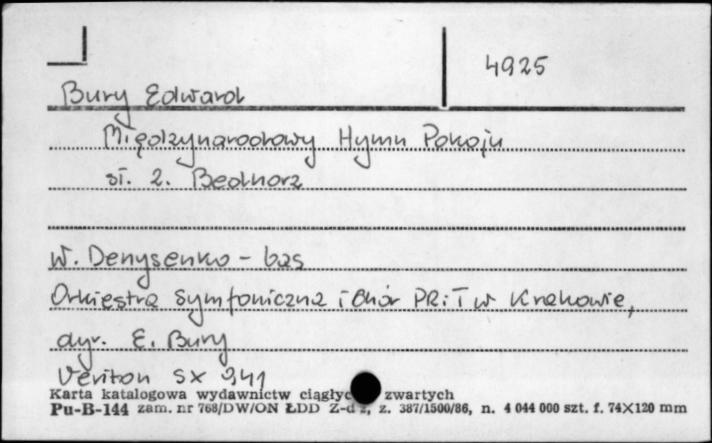 4925
Bury Edward
Międzynarodowy Hymn Pokoju
sł. Z. Bednorz
W. Denysenko - bas
Orkiestra Symfoniczna i Chór PRiT w Krakowie,
dyr. E. Bury
Veriton SX 941
Karta katalogowa wydawnictw ciągłyc zwartych
Pu-B-144 zam. nr 768/DW/ON ŁDD Z-d z, z. 387/1500/86, n. 4 044 000 szt. f. 74X120 mm